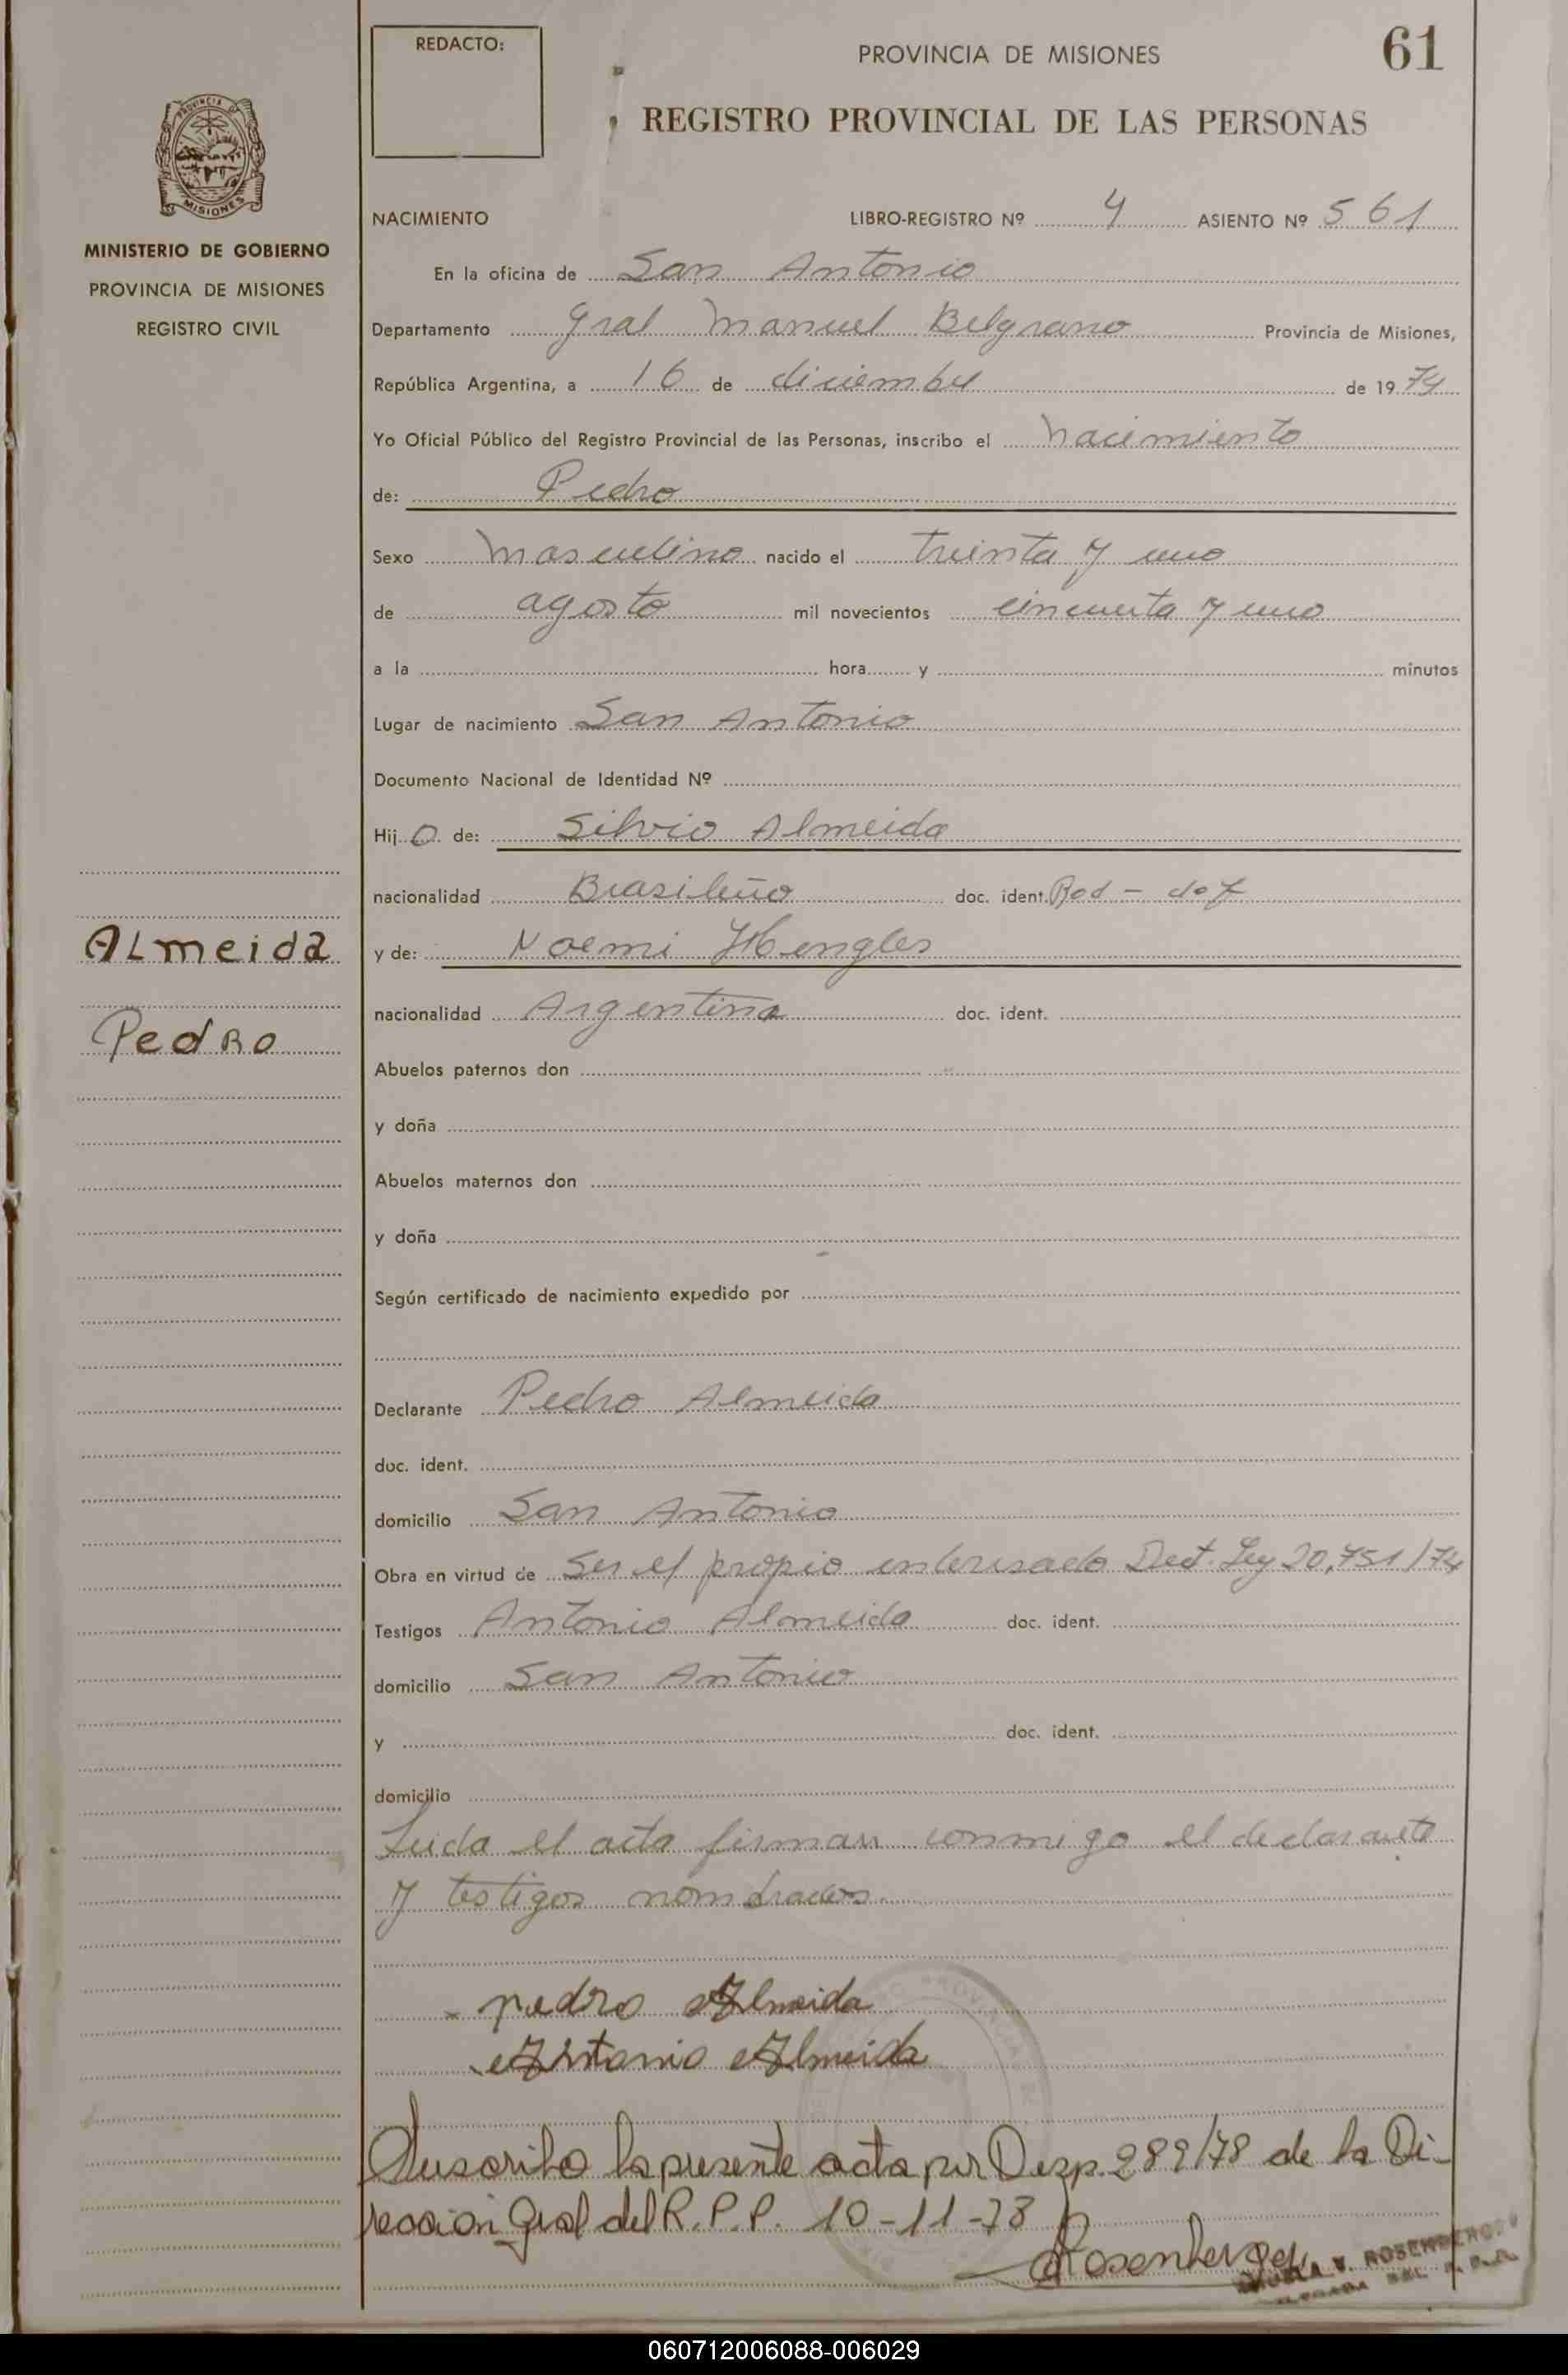 REDACTO:
PROVINCIA DE MISIONES
61
REGISTRO PROVINCIAL DE LAS PERSONAS
PROVINCIA DE
MISIONES
MINISTERIO DE GOBIERNO
PROVINCIA DE MISIONES
REGISTRO CIVIL
NACIMIENTO LIBRO-REGISTRO Nº 4 ASIENTO Nº 561
En la oficina de San Antonio
Departamento Gral Manuel Belgrano Provincia de Misiones,
República Argentina, a 16 de diciembre de 1974
Yo Oficial Público del Registro Provincial de las Personas, inscribo el nacimiento
de: Pedro
Sexo masculino nacido el treinta y uno
de agosto mil novecientos cincuenta y uno
a la hora y minutos
Lugar de nacimiento San Antonio
Documento Nacional de Identidad Nº
Hijo de: Silvio Almeida
nacionalidad Brasileño doc. ident.
Almeida
y de: Noemi
Pedro
nacionalidad Argentina doc. ident.
Abuelos paternos don
y doña
Abuelos maternos don
y doña
Según certificado de nacimiento expedido por
Declarante Pedro Almeida
doc. ident.
domicilio San Antonio
Obra en virtud de Ser el propio interesado Dect. Ley 20,751/74
Testigos Antonio Almeida doc. ident.
domicilio San Antonio
y doc. ident.
domicilio
Leida el acta firman conmigo el declarante
y testigos nombrados
pedro Almeida
Antonio Almeida
Suscribo la presente acta por Desp. 289/78 de la Di-
reccion Gral del R.P.P. 10-11-78
Rosenberger
V. ROSENBERGER
DEL R.P.P.
060712006088-006029